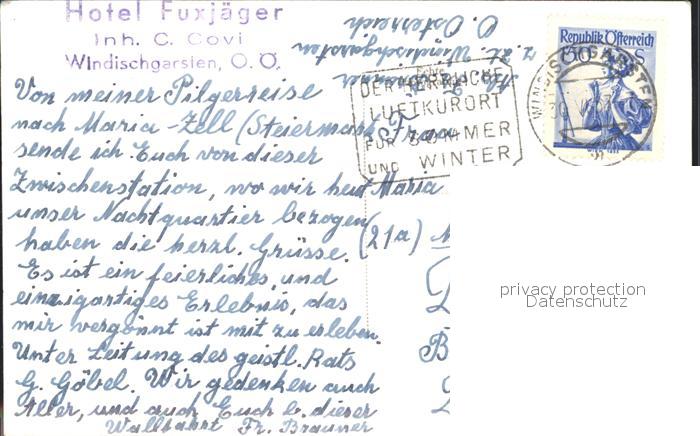 Hotel Fuxjäger
Inh. C. Covi
Windischgarsten, O.Ö.
z. Zt. Windischgarsten
O. Österreich
Republik Österreich
WINDISCHGARSTEN
DER HERRLICHE
LUFTKURORT
FÜR SOMMER
UND WINTER
Von meiner Pilgerreise
nach Maria-Zell (Steiermark)
sende ich Euch von dieser
Zwischenstation, wo wir heut
unser Nachtquartier bezogen
haben die herzl. Grüsse.
Es ist ein feierliches, und
einzigartiges Erlebnis, das
mir vergönnt ist mit zu erleben.
Unter Leitung des geistl. Rats
G. Göbel. Wir gedenken auch
Aller, und auch Euch b. dieser
Wallfahrt Fr. Brauner
Frau
Maria
(21a)
privacy protection
Datenschutz